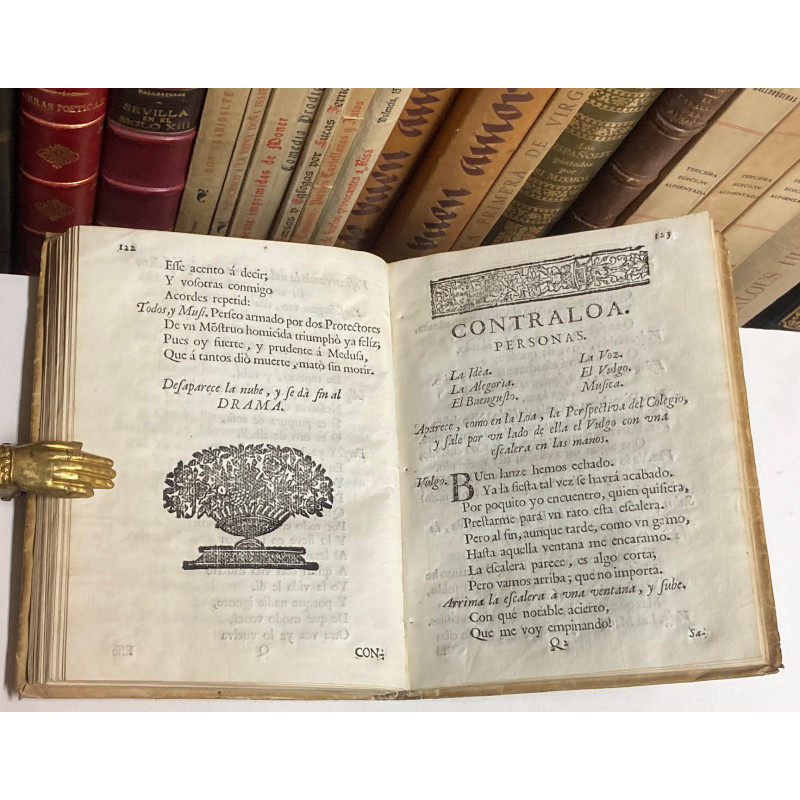 OBRAS POETICAS
BALLESTEROS
SEVILLA
EN EL
SIGLO XIII
Comedia Prodi
por Lucas Fern
Valencia, 15
buen amor
buen amor
PRIMERA DE VIRG
LOS ESPAÑOLES
Pintados
por
SI MISMOS
TERCERA
EDICION
AUMENTADA
TERCERA
EDICION
AUMENTADA
122
Esse acento á decir;
Y vosotras conmigo
Acordes repetid:
Todos, y Musi. Perseo armado por dos Protectores
De vn Mõstruo homicida triumphò ya felíz;
Pues oy fuerte, y prudente á Medusa,
Que á tantos diò muerte, matò sin morir.
Desaparece la nube, y se dà fin al
DRAMA.
Q
CON-
123
CONTRALOA.
PERSONAS.
La Idèa.
La Voz.
La Alegoria.
El Vulgo.
El Buengusto.
Musica.
Aparece, como en la Loa, la Perspectiva del Colegio,
y sale por vn lado de ella el Vulgo con vna
escalera en las manos.
Vulgo. BUen lanze hemos echado.
Ya la fiesta tal vez se havrá acabado.
Por poquito yo encuentro, quien quisiera,
Prestarme para vn rato esta escalera.
Pero al fin, aunque tarde, como vn gamo,
Hasta aquella ventana me encaramo.
La escalera parece, es algo corta;
Pero vamos arriba; que no importa.
Arrima la escalera à vna ventana, y sube.
Con qué notable acierto,
Que me voy empinando!
Q2
Sa-